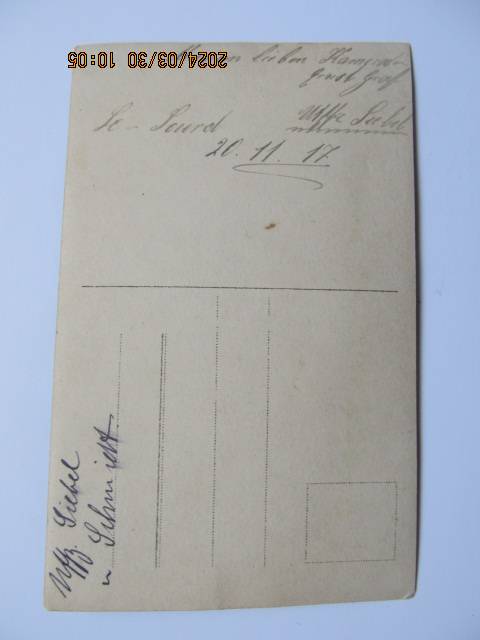 2024/03/30 10:05
lieben Kamerad
Ernst Graf
Le - Sourd Uffz Siebel
20. 11. 17.
Uffz. Siebel
u Schmidt.